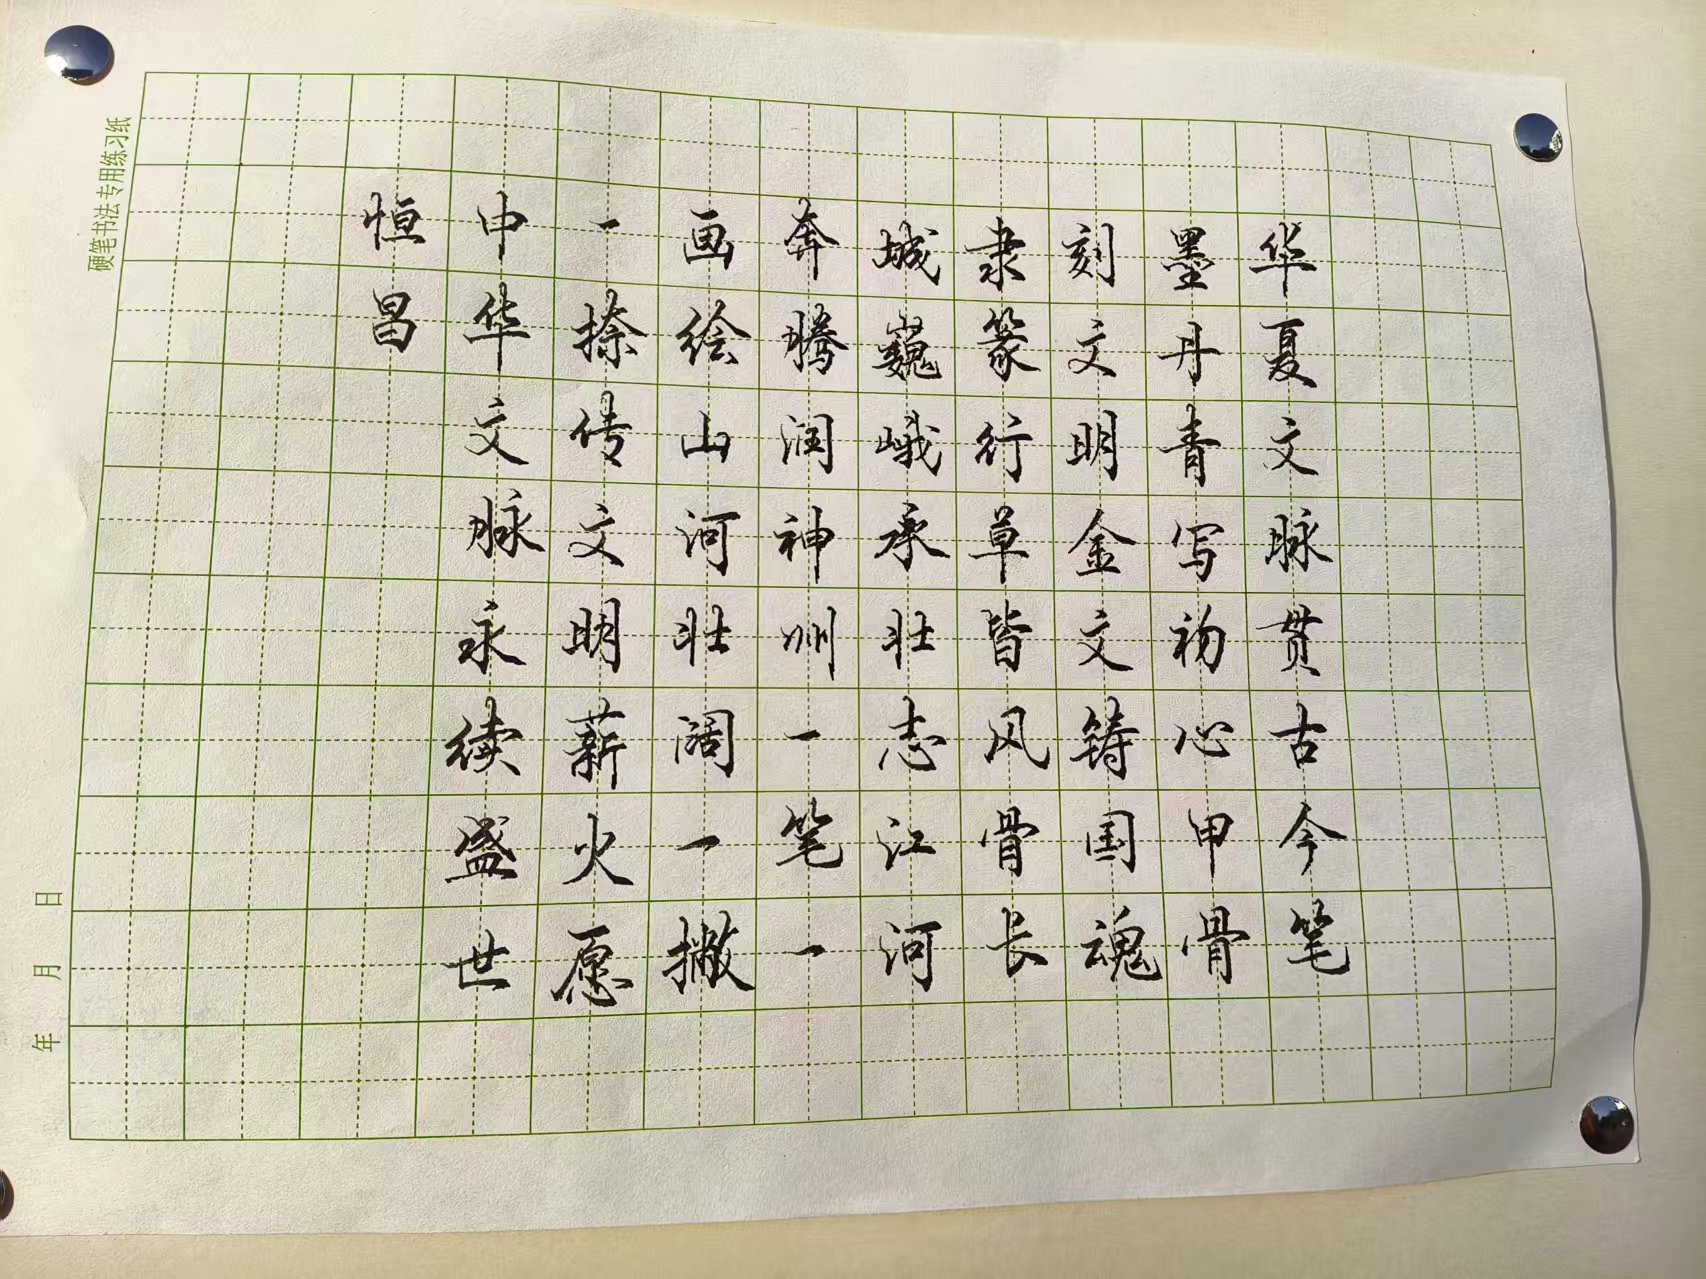 华夏文脉贯古今笔
墨丹青写初心甲骨
刻文明金文铸国魂
隶篆行草皆风骨长
城巍峨承壮志江河
奔腾润神州一笔一
画绘山河壮阔一撇
一捺传文明薪火愿
中华文脉永续盛世
恒昌
硬笔书法专用练习纸
年 月 日